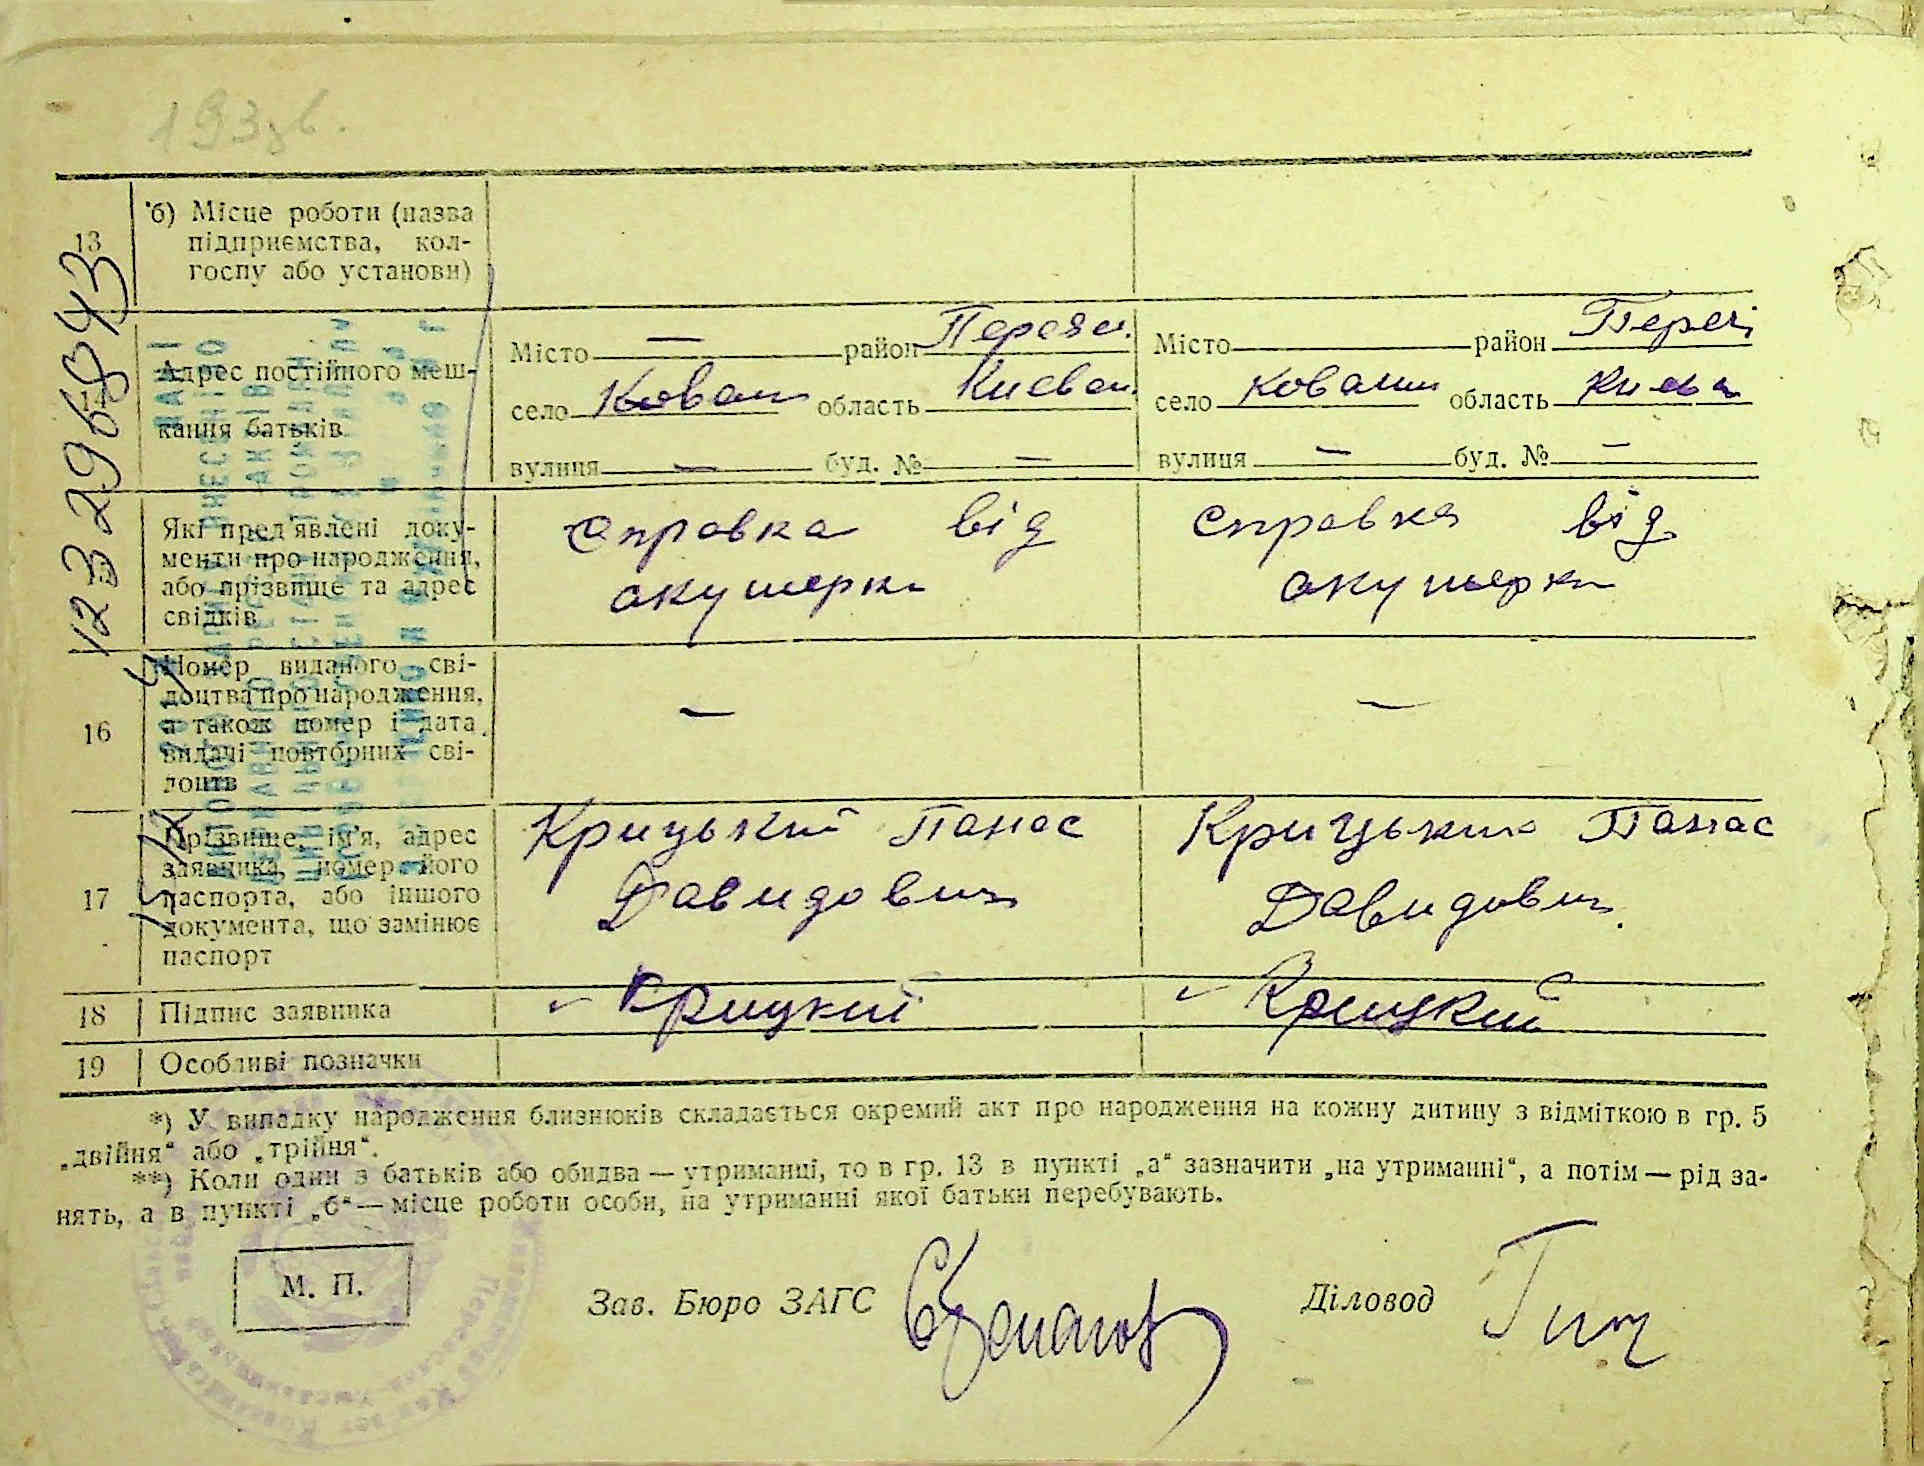 193зв.
13
б) Місце роботи (назва
підприємства, кол-
госпу або установи)
12329684343
Адрес постійного меш-
кання батьків
Місто — район Переяс.
село Ковал область Києвс.
вулиця — буд. № —
Місто район
село Ковалин область Києв
вулиця — буд. № —
Які пред'явлені доку-
менти про народження,
або прізвище та адрес
свідків
Справка від
акушерки
Справка від
акушерки
16
Номер виданого сві-
доцтва про народження,
а також номер і дата
видачі повторних сві-
доцтв
—
—
17
Прізвище, ім'я, адрес
заявника, номер його
паспорта, або іншого
документа, що замінює
паспорт
Крицький Панас
Давидович
Крицький Панас
Давидович
18
Підпис заявника
Крицкий
Крицкий
19
Особливі позначки
*) У випадку народження близнюків складається окремий акт про народження на кожну дитину з відміткою в гр. 5
„двійня“ або „трійня“.
**) Коли один з батьків або обидва — утриманці, то в гр. 13 в пункті „а“ зазначити „на утриманні“, а потім — рід за-
нять, а в пункті „б“ — місце роботи особи, на утриманні якої батьки перебувають.
М. П.
Зав. Бюро ЗАГС
Діловод